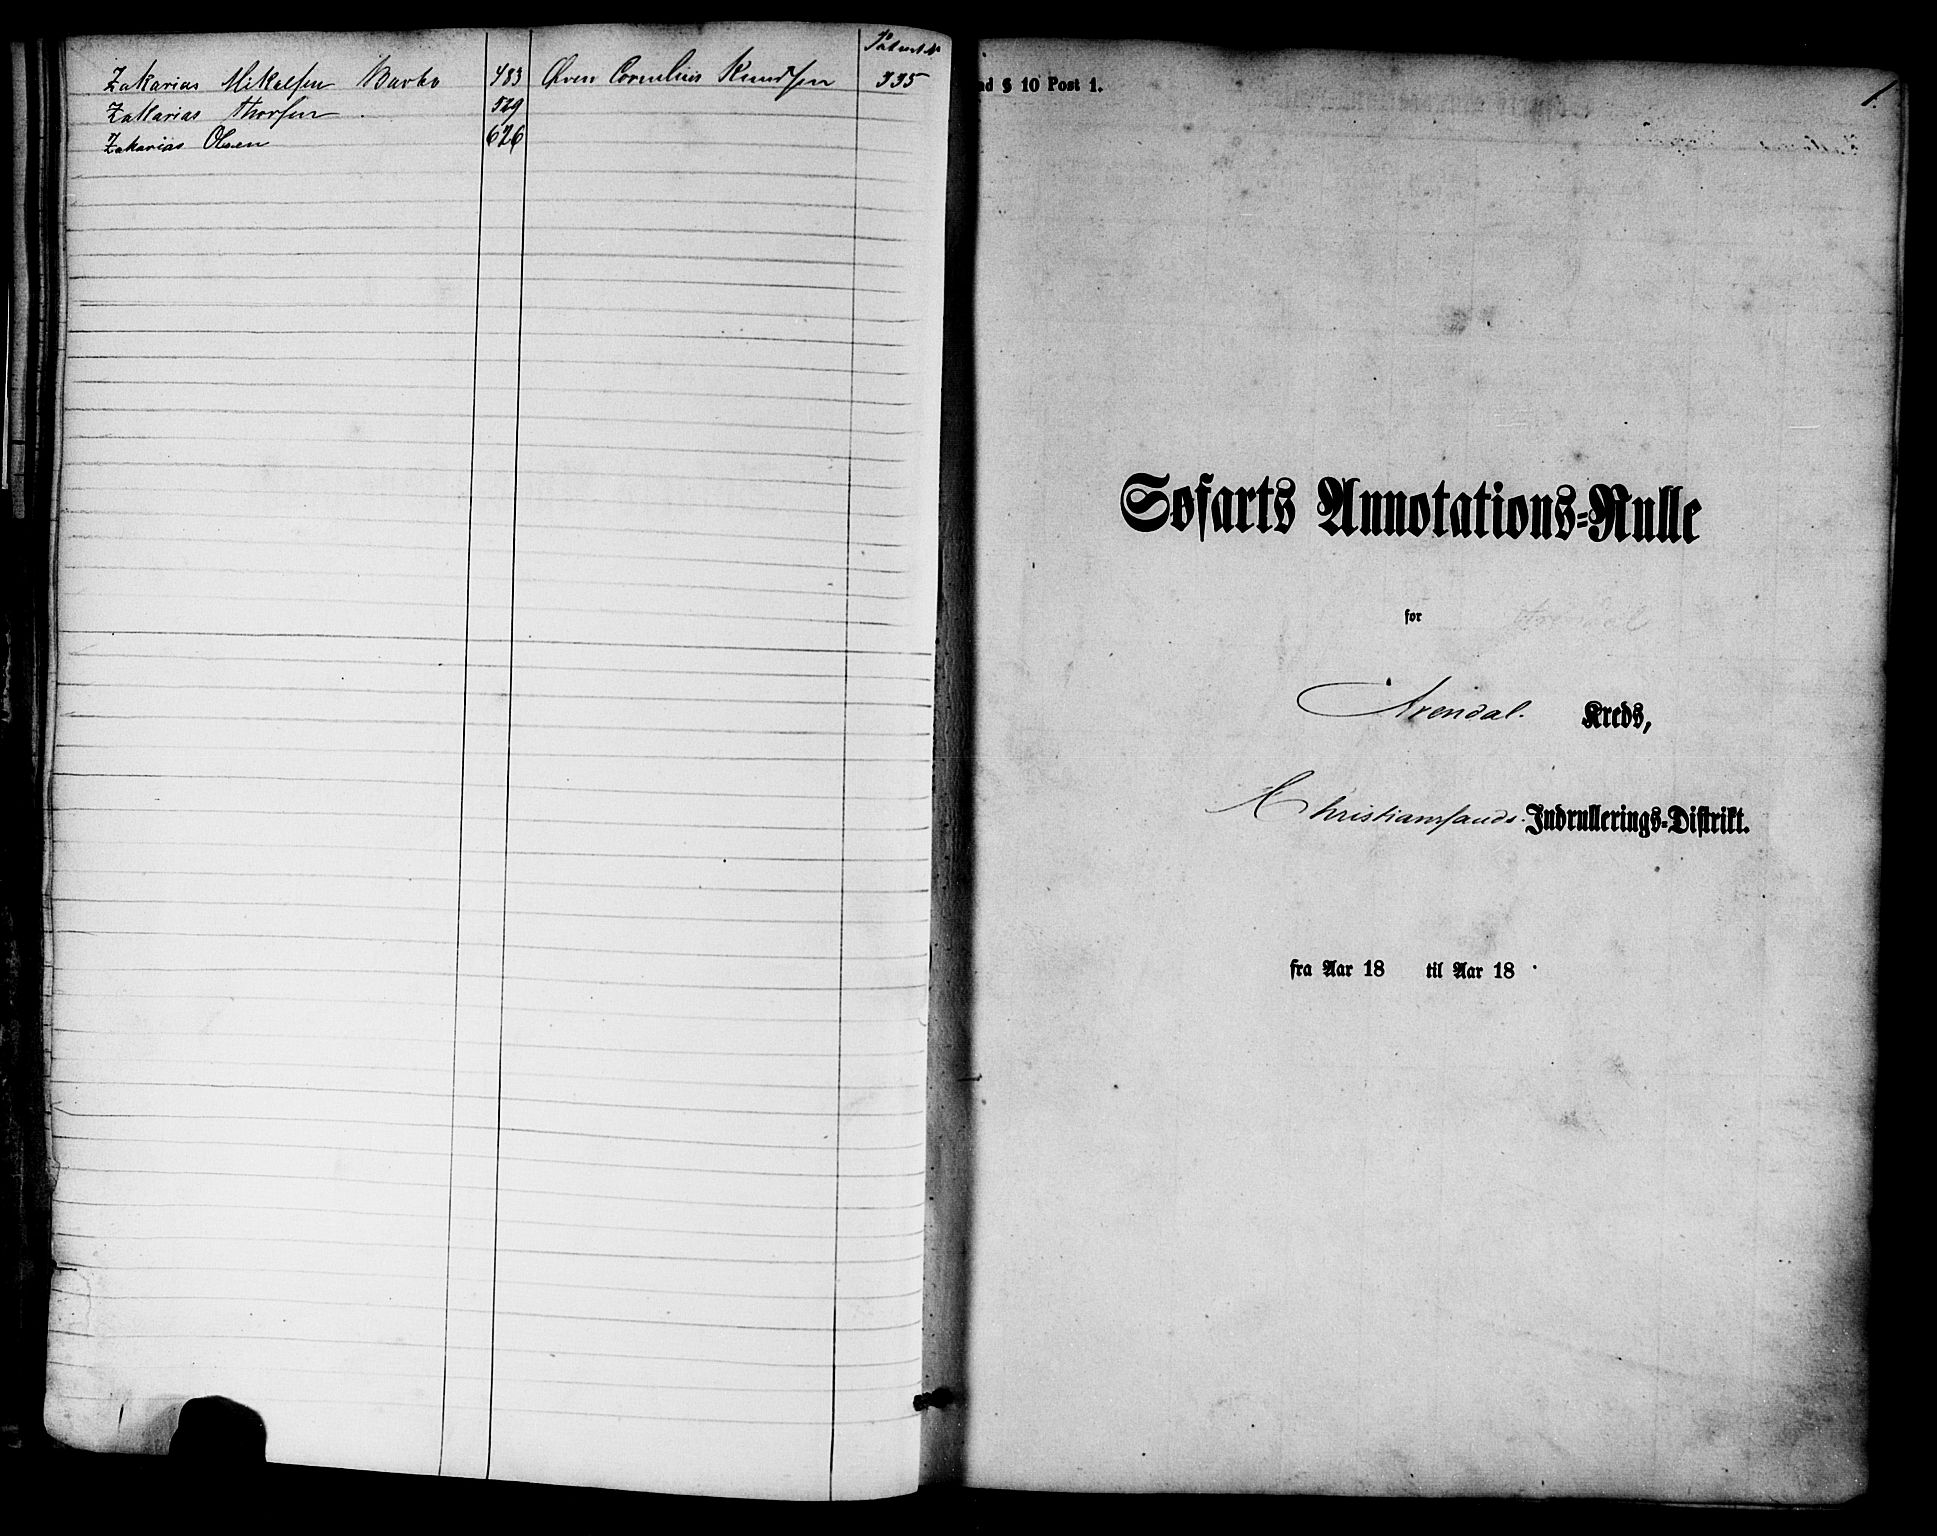 Zakarias Mikalsen Barbo 483 Øven Cornelius Knudsen 335
Zakarias Thorsen 529
Zakarias Olsen 626
ad § 10 Post 1.
1.
Søfarts Annotations-Rulle
for Arendal
Arendal. Kreds,
Christiansands. Indrullerings-Distrikt.
fra Aar 18 til Aar 18 .